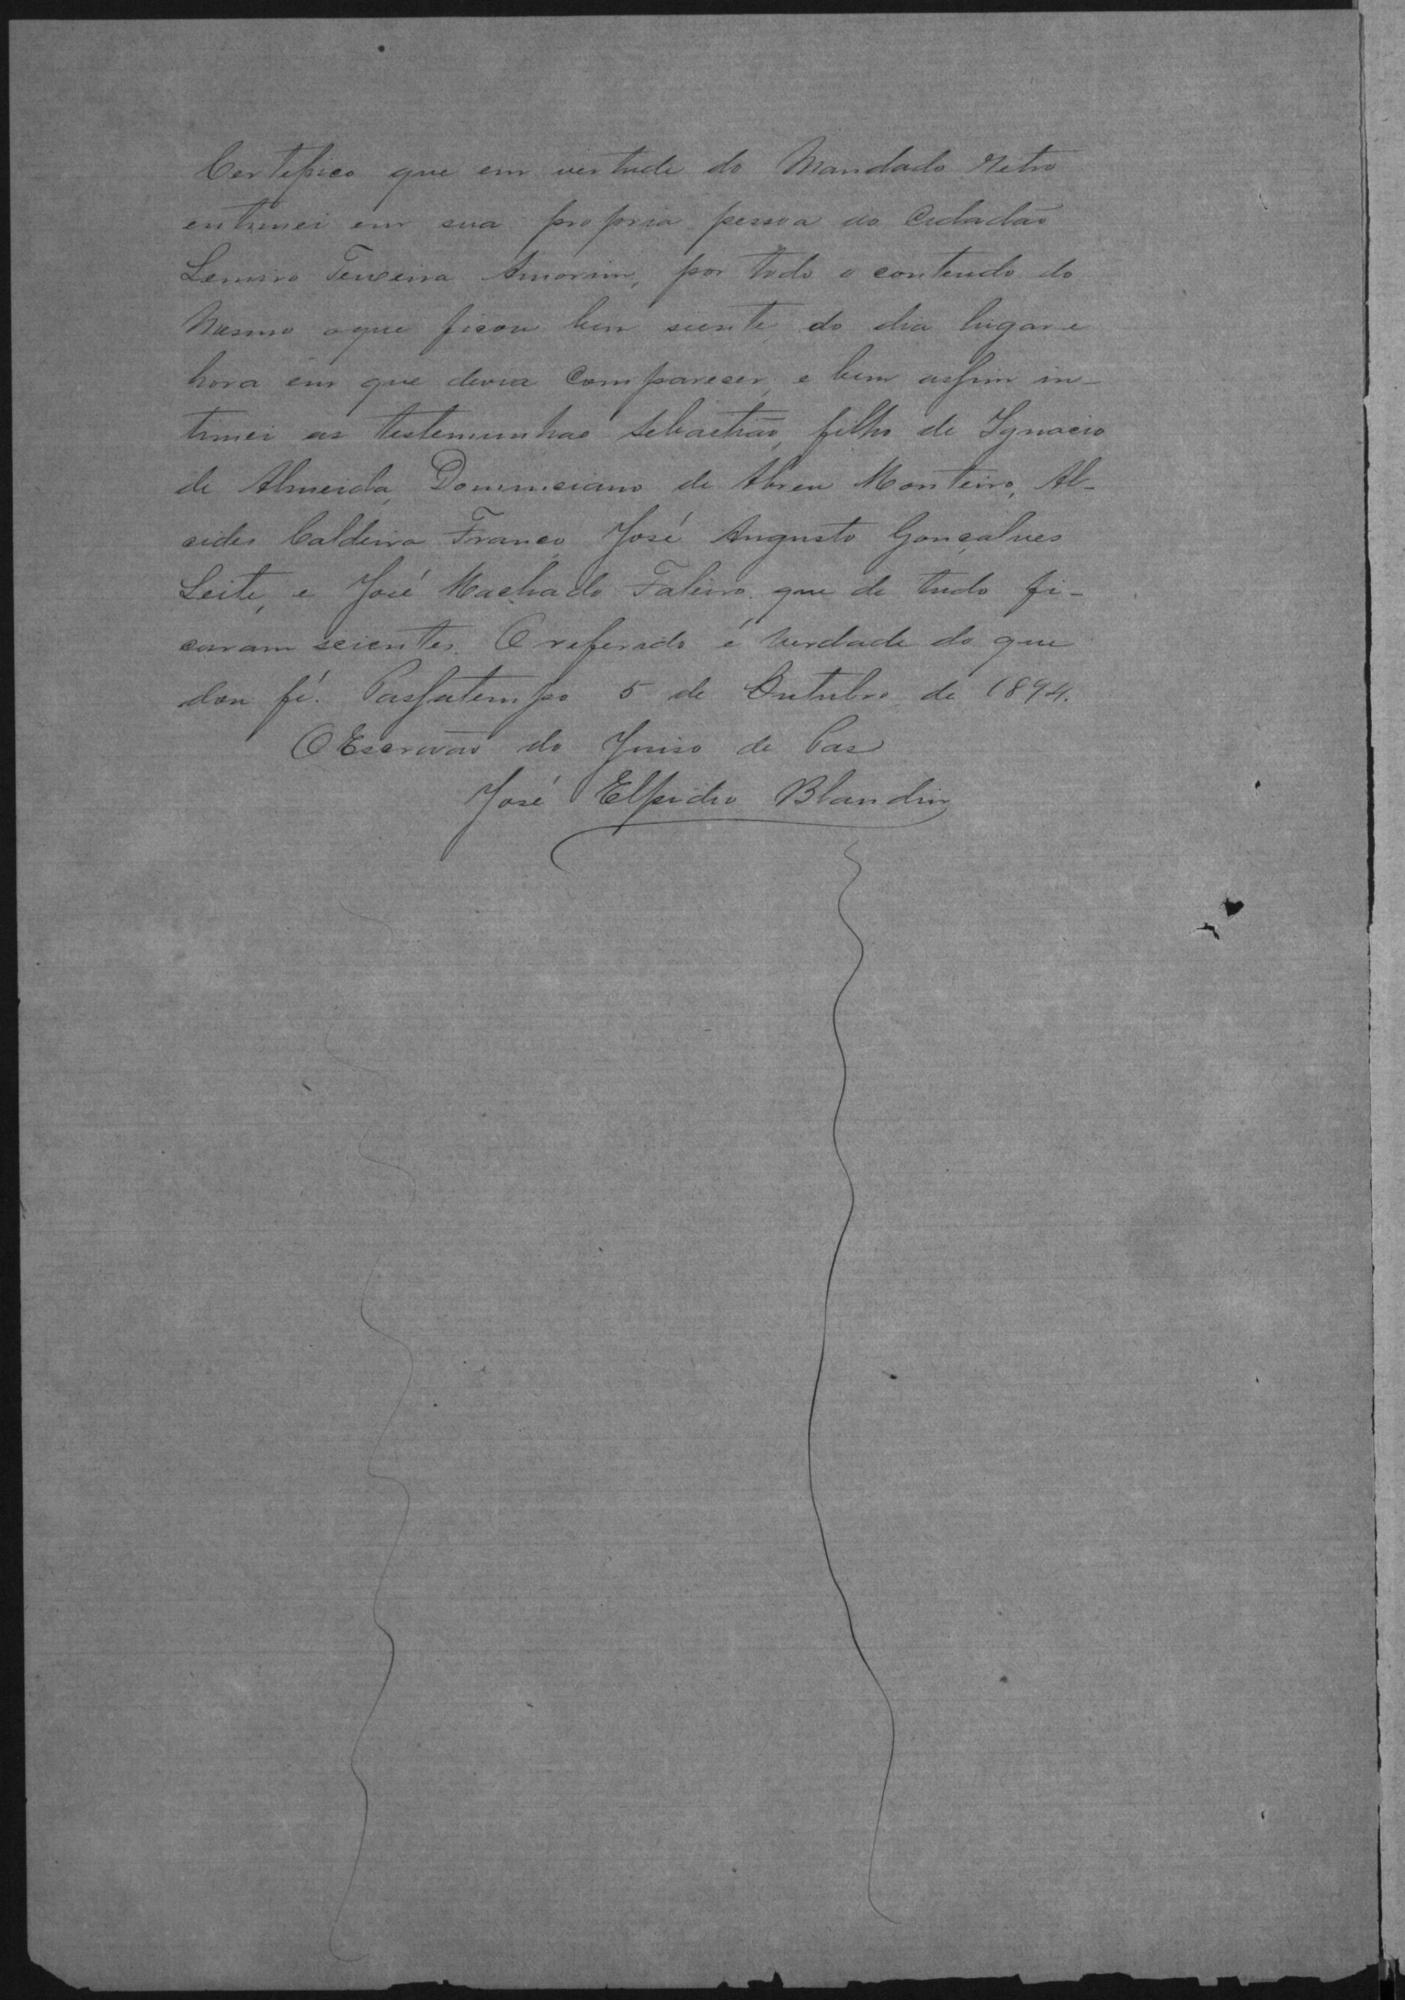 Certifico que em vertude do Mandado Retro
entimei em sua propria pessoa ao Cidadão
Teixeira Amorim, por todo o conteudo do
Mesmo oque ficou bem siente, do dia lugar e
hora em que devia Comparecer, e bem assim in-
timei as testemunhas Sebastião, filho de Ignacio
de Almeida, Domiciano de Abreu Monteiro, Al-
cides Caldeira Franco, José Augusto Gonçalves
Leite, e José Machado Faleiro, que de tudo fi-
caram scientes. O referido é verdade do que
dou fé. Passatempo 5 de Outubro de 1894.
O Escrivão do Juiso de Pas
José Elpidio Blandin